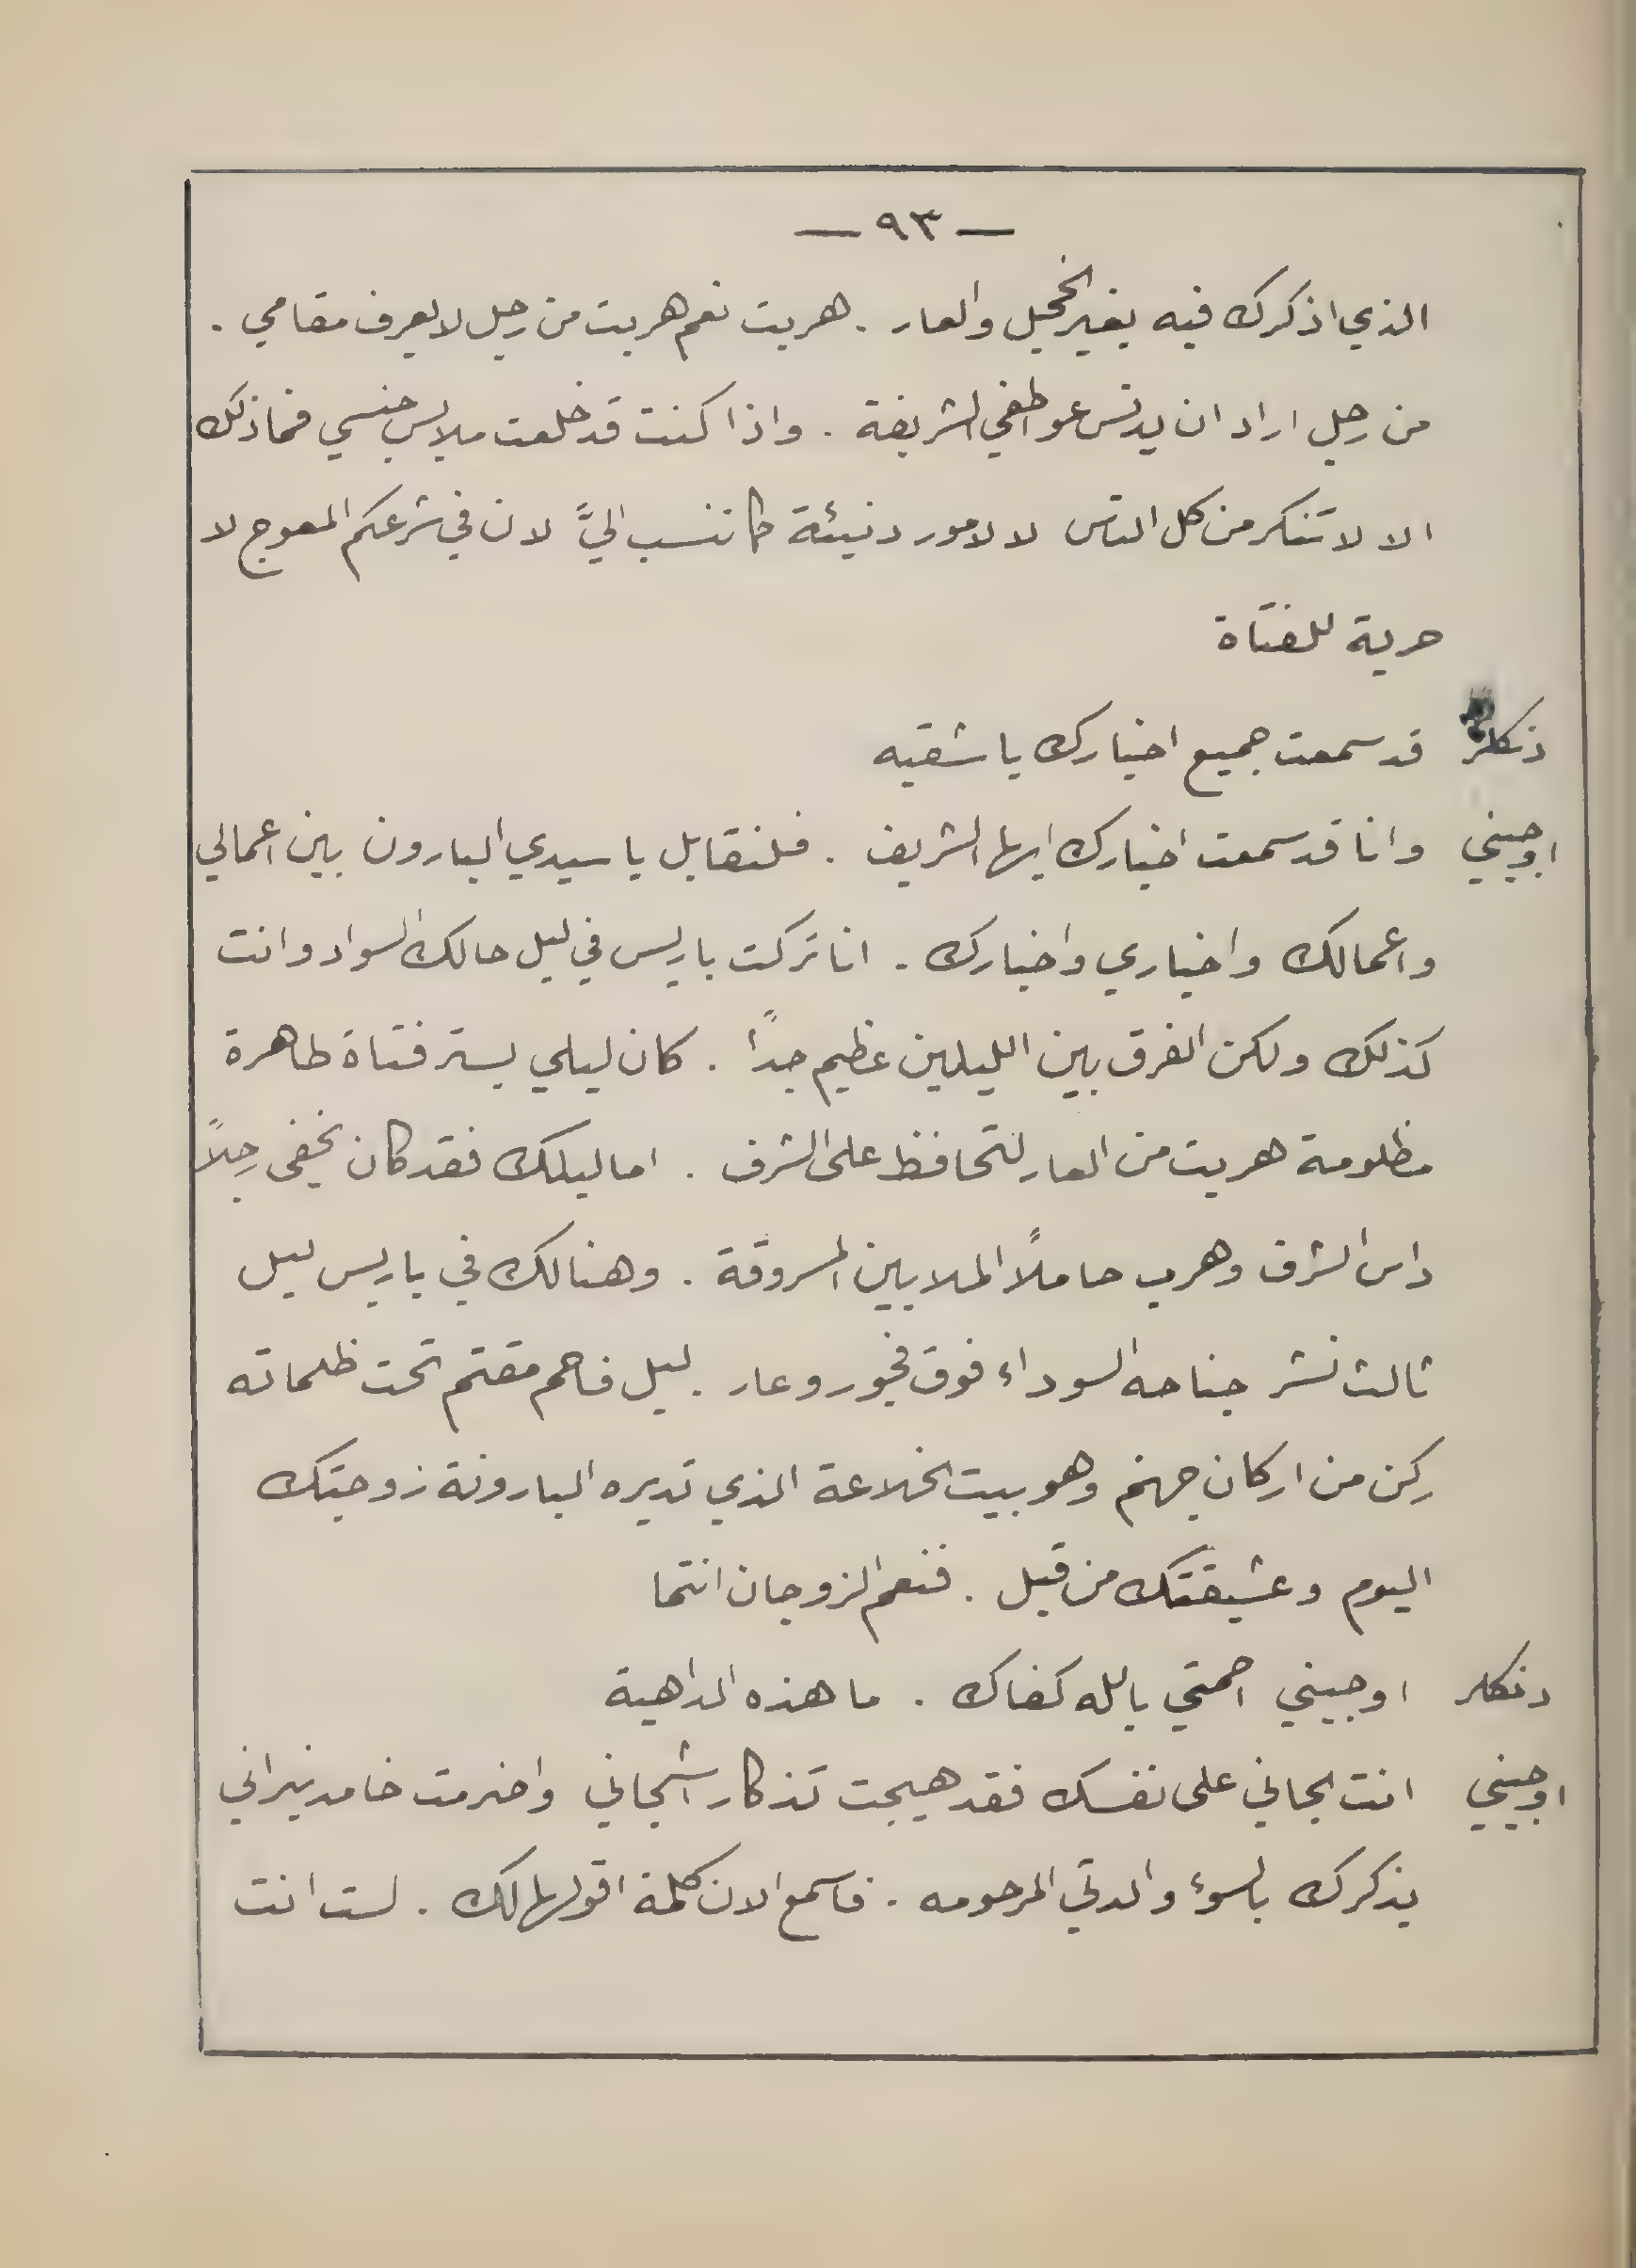 — ٩٣ —
الذي اذكرك فيه بغير الخجل والعار . هربت نعم هربت من رجل لا يعرف مقامي .
من رجل اراد ان يدنس عواطفي الشريفة . واذا كنت قد خلعت ملابس جنسي فما ذلك
الا لاتنكر من كل الناس لا لامور دنيئة كما تنسب اليَّ لان في شرعكم المعوج لا
حرية للفتاة
دنكلر قد سمعت جميع اخبارك يا شقيه
اوجيني وانا قد سمعت اخبارك ايها الشريف . فلنقابل يا سيدي البارون بين اعمالي
واعمالك واخباري واخبارك . انا تركت باريس في ليل حالك السواد وانت
كذلك ولكن الفرق بين الليلين عظيم جداً . كان ليلي يستر فتاة طاهرة
مظلومة هربت من العار لتحافظ على الشرف . اما ليلك فقد كان يخفي رجلاً
داس الشرف وهرب حاملاً الملايين المسروقة . وهنالك في باريس ليل
ثالث نشر جناحه السوداء فوق فجور وعار . ليل فاحم مقتم تحت ظلماته
ركن من اركان جهنم وهو بيت الخلاعة الذي تديره البارونة زوجتك
اليوم وعشيقتك من قبل . فنعم الزوجان انتما
دنكلر اوجيني اصمتي بالله كفاك . ما هذه الداهية
اوجيني انت الجاني على نفسك فقد هيجت تذكار اشجاني واضرمت خامد نيراني
بذكرك بالسوء والدتي المرحومه . فاسمع الان كلمة اقولها لك . لست انت